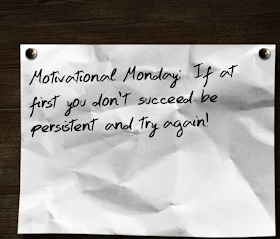 Motivational Monday: If at
first you don't succeed be
persistent and try again!